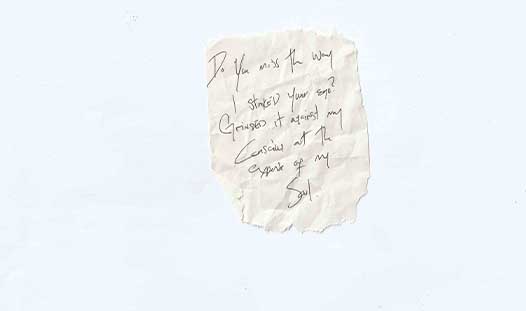 Do You miss the way
I stroked your ego?
Grinded it against my
Conscious at the
expense of my
Soul.